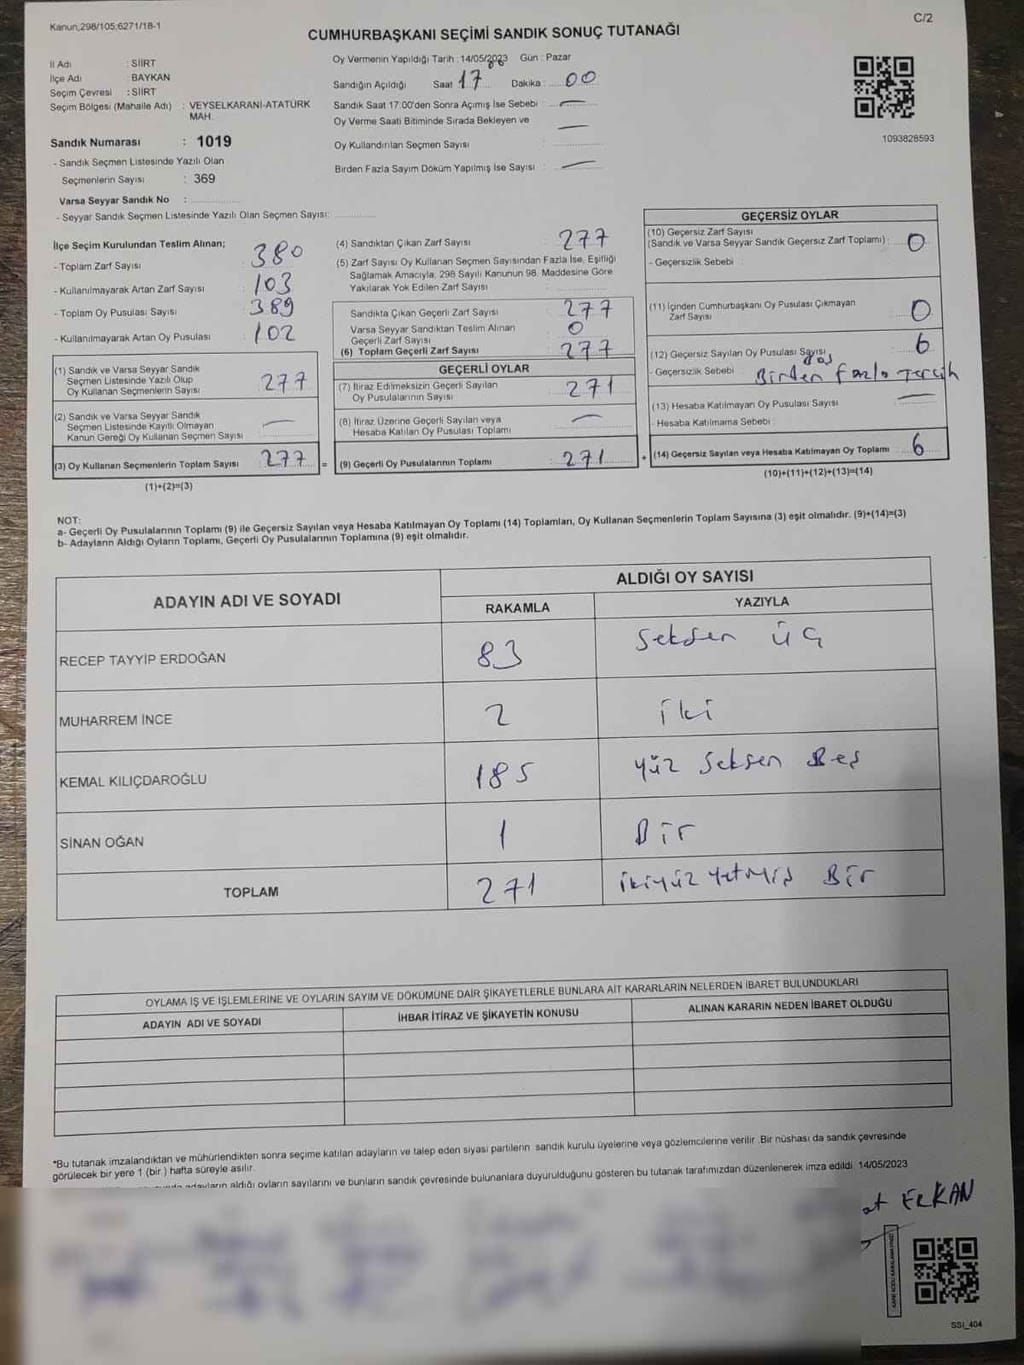 Kanun;298/105;6271/18-1
C/2
CUMHURBAŞKANI SEÇİMİ SANDIK SONUÇ TUTANAĞI
İl Adı : SİİRT
İlçe Adı : BAYKAN
Seçim Çevresi : SİİRT
Seçim Bölgesi (Mahalle Adı) : VEYSELKARANİ-ATATÜRK
MAH.
Sandık Numarası : 1019
- Sandık Seçmen Listesinde Yazılı Olan
Seçmenlerin Sayısı : 369
Varsa Seyyar Sandık No :
- Seyyar Sandık Seçmen Listesinde Yazılı Olan Seçmen Sayısı:
Oy Vermenin Yapıldığı Tarih : 14/05/2023 Gün : Pazar
Sandığın Açıldığı Saat 17 Dakika : 00
Sandık Saat 17.00'den Sonra Açılmış İse Sebebi : —
Oy Verme Saati Bitiminde Sırada Bekleyen ve —
Oy Kullandırılan Seçmen Sayısı :
Birden Fazla Sayım Döküm Yapılmış İse Sayısı : —
1093828593
İlçe Seçim Kurulundan Teslim Alınan;
- Toplam Zarf Sayısı : 380
- Kullanılmayarak Artan Zarf Sayısı : 103
- Toplam Oy Pusulası Sayısı : 389
- Kullanılmayarak Artan Oy Pusulası : 102
(1) Sandık ve Varsa Seyyar Sandık
Seçmen Listesinde Yazılı Olup
Oy Kullanan Seçmenlerin Sayısı : 277
(2) Sandık ve Varsa Seyyar Sandık
Seçmen Listesinde Kayıtlı Olmayan
Kanun Gereği Oy Kullanan Seçmen Sayısı : —
(3) Oy Kullanan Seçmenlerin Toplam Sayısı : 277 =
(1)+(2)=(3)
(4) Sandıktan Çıkan Zarf Sayısı : 277
(5) Zarf Sayısı Oy Kullanan Seçmen Sayısından Fazla İse, Eşitliği
Sağlamak Amacıyla, 298 Sayılı Kanunun 98. Maddesine Göre
Yakılarak Yok Edilen Zarf Sayısı :
Sandıkta Çıkan Geçerli Zarf Sayısı : 277
Varsa Seyyar Sandıktan Teslim Alınan
Geçerli Zarf Sayısı : 0
(6) Toplam Geçerli Zarf Sayısı : 277
GEÇERLİ OYLAR
(7) İtiraz Edilmeksizin Geçerli Sayılan
Oy Pusulalarının Sayısı : 271
(8) İtiraz Üzerine Geçerli Sayılan veya
Hesaba Katılan Oy Pusulası Toplamı : —
(9) Geçerli Oy Pusulalarının Toplamı : 271 +
GEÇERSİZ OYLAR
(10) Geçersiz Zarf Sayısı
(Sandık ve Varsa Seyyar Sandık Geçersiz Zarf Toplamı) : 0
- Geçersizlik Sebebi :
(11) İçinden Cumhurbaşkanı Oy Pusulası Çıkmayan
Zarf Sayısı : 0
(12) Geçersiz Sayılan Oy Pusulası Sayısı : 6
- Geçersizlik Sebebi : Birden fazla Tercih
(13) Hesaba Katılmayan Oy Pusulası Sayısı : —
- Hesaba Katılmama Sebebi :
(14) Geçersiz Sayılan veya Hesaba Katılmayan Oy Toplamı : 6
(10)+(11)+(12)+(13)=(14)
NOT:
a- Geçerli Oy Pusulalarının Toplamı (9) ile Geçersiz Sayılan veya Hesaba Katılmayan Oy Toplamı (14) Toplamları, Oy Kullanan Seçmenlerin Toplam Sayısına (3) eşit olmalıdır. (9)+(14)=(3)
b- Adayların Aldığı Oyların Toplamı, Geçerli Oy Pusulalarının Toplamına (9) eşit olmalıdır.
ADAYIN ADI VE SOYADI
ALDIĞI OY SAYISI
RAKAMLA YAZIYLA
RECEP TAYYİP ERDOĞAN 83 Seksen üç
MUHARREM İNCE 2 iki
KEMAL KILIÇDAROĞLU 185 yüz Seksen Beş
SİNAN OĞAN 1 Bir
TOPLAM 271 ikiyüz yetmiş Bir
OYLAMA İŞ VE İŞLEMLERİNE VE OYLARIN SAYIM VE DÖKÜMÜNE DAİR ŞİKAYETLERLE BUNLARA AİT KARARLARIN NELERDEN İBARET BULUNDUKLARI
ADAYIN ADI VE SOYADI İHBAR İTİRAZ VE ŞİKAYETİN KONUSU ALINAN KARARIN NEDEN İBARET OLDUĞU
*Bu tutanak imzalandıktan ve mühürlendikten sonra seçime katılan adayların ve talep eden siyasi partilerin sandık kurulu üyelerine veya gözlemcilerine verilir. Bir nüshası da sandık çevresinde
görülecek bir yere 1 (bir ) hafta süreyle asılır.
adayların aldığı oyların sayılarını ve bunların sandık çevresinde bulunanlara duyurulduğunu gösteren bu tutanak tarafımızdan düzenlenerek imza edildi. 14/05/2023
at ERKAN
SSI_404